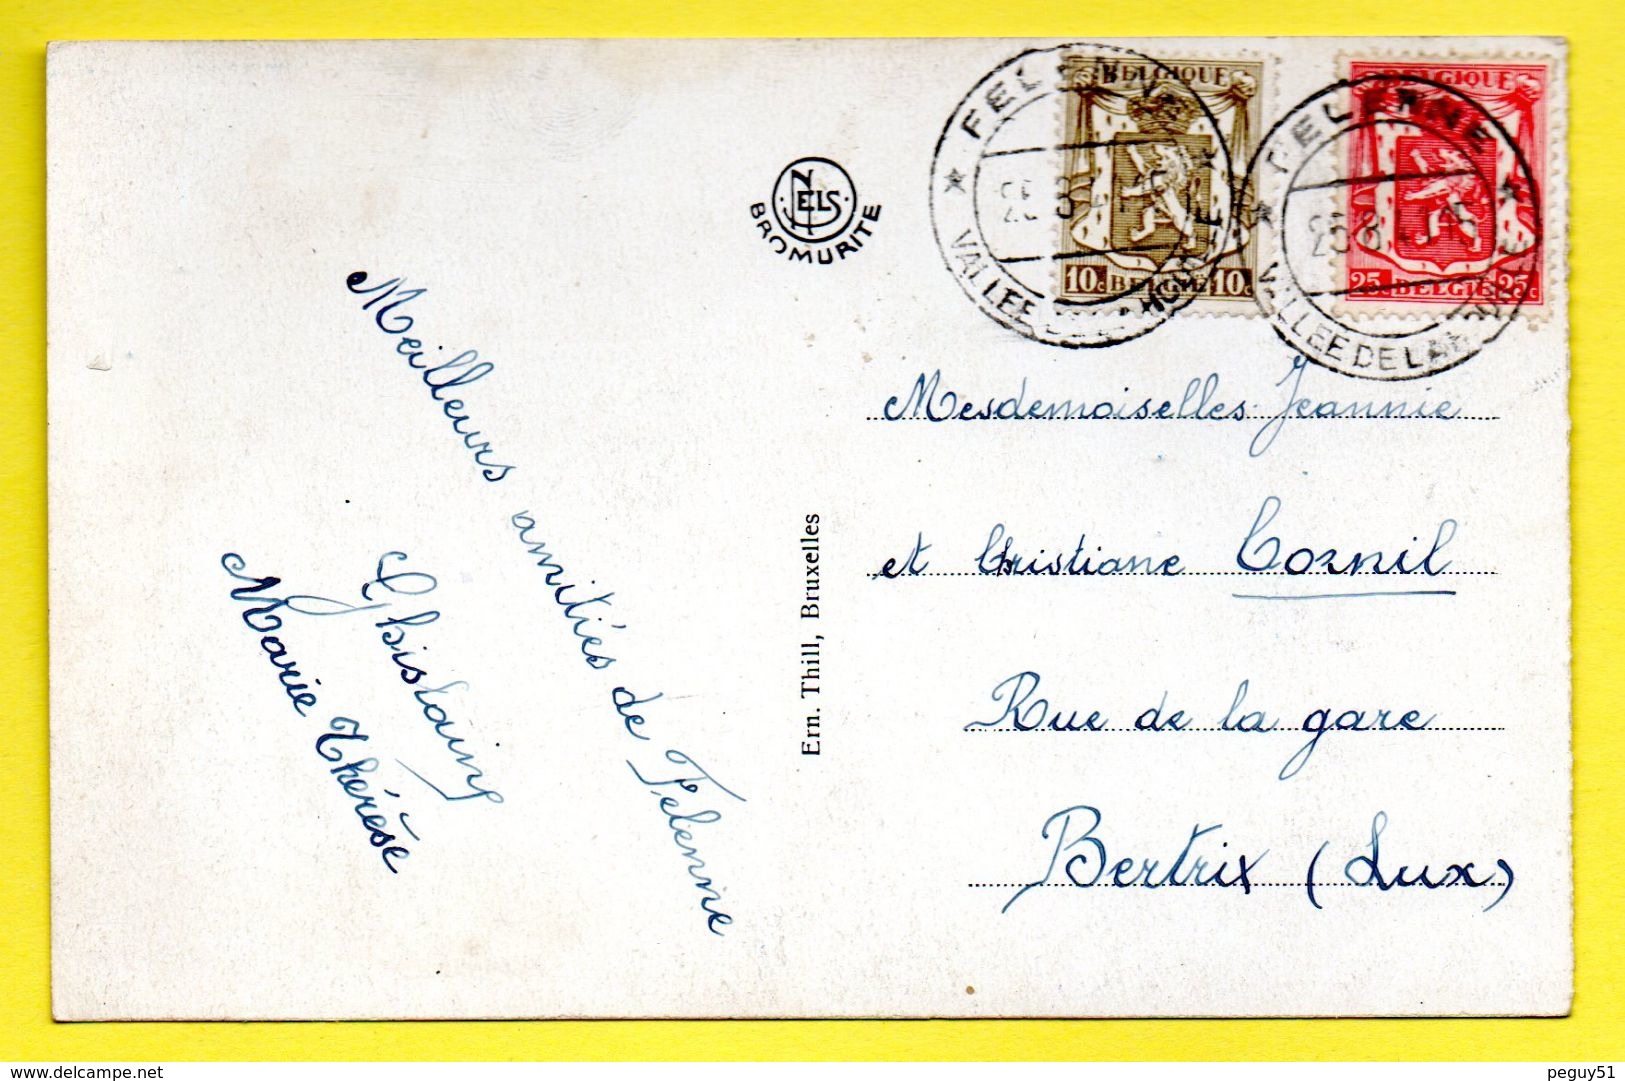 Meilleurs amitiés de Felenne
Ghislaine
Marie Thérèse
NELS
BROMURITE
Ern. Thill, Bruxelles
FELENNE
VALLEE
BELGIQUE
10c BELGIE 10c
FELENNE
VALLEE DE LA
BELGIQUE
25c BELGIE 25c
Mesdemoiselles Jeannie
et Christiane Cornil
Rue de la gare
Bertrix (Lux)
www.delcampe.net
peguy51